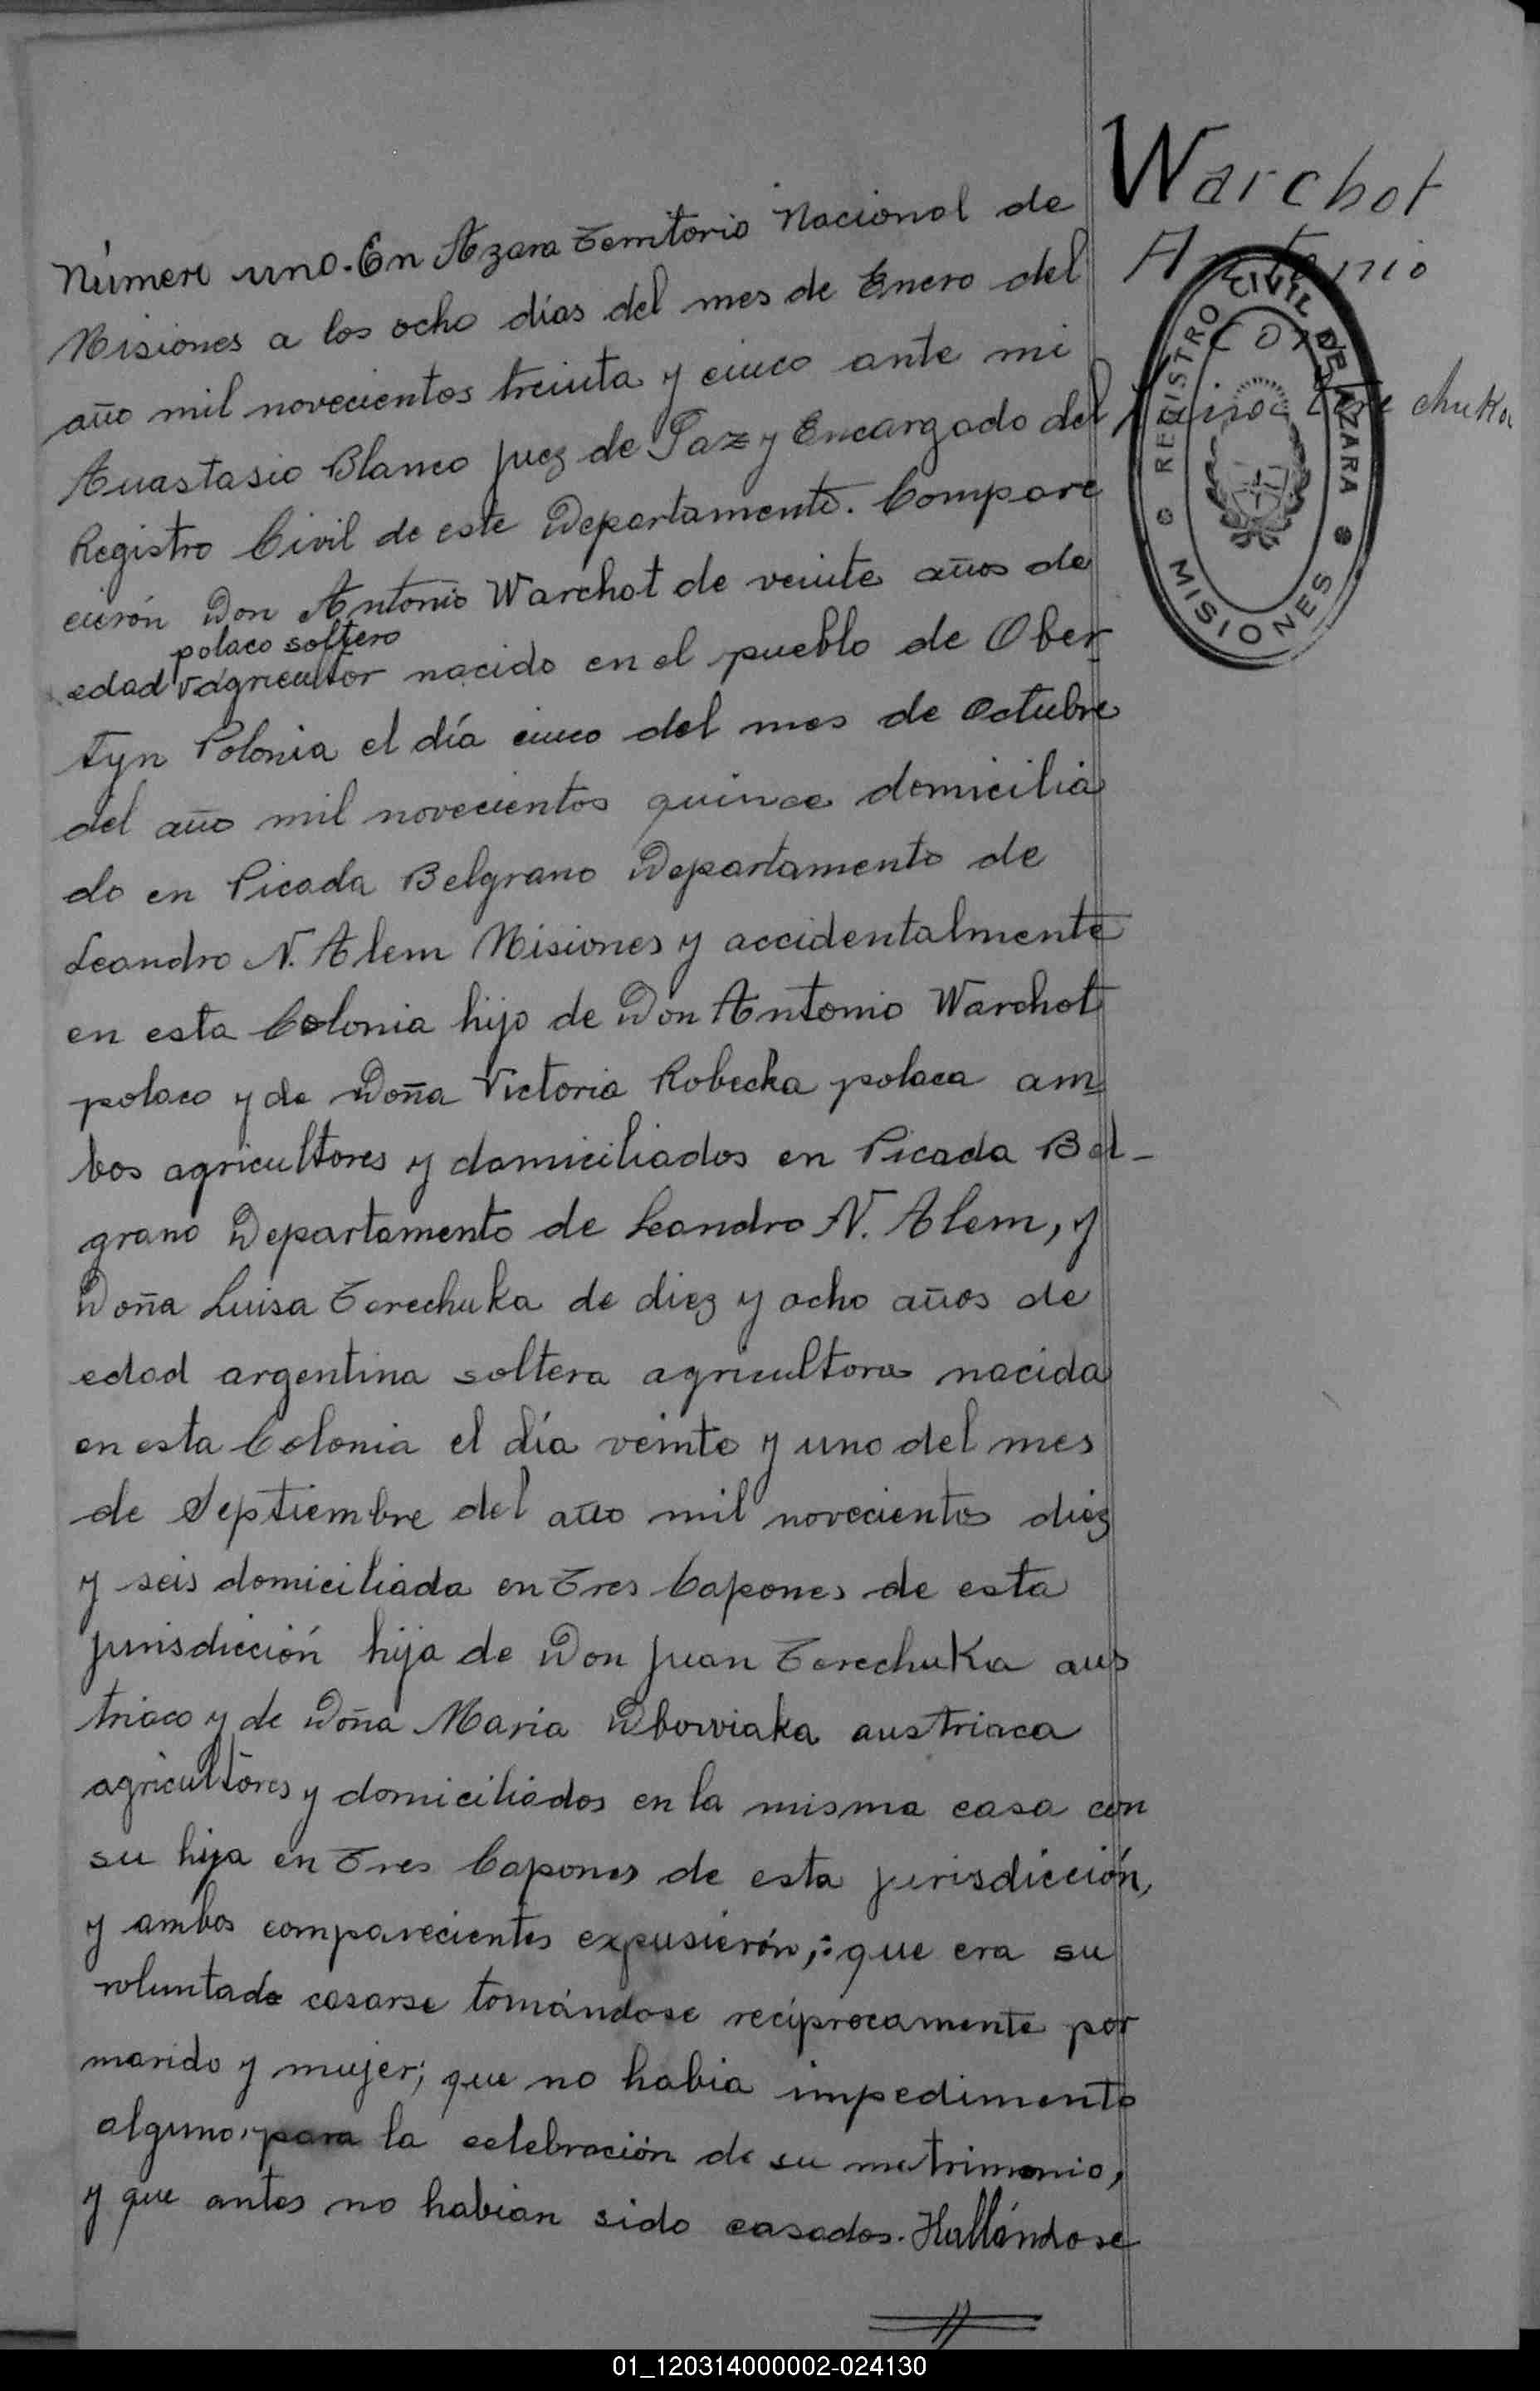 Warchot
Antonio
con
Luisa Terechuka
REGISTRO CIVIL DE AZARA
MISIONES
Número uno. En Azara Territorio Nacional de
Misiones a los ocho días del mes de Enero del
año mil novecientos treinta y cinco ante mi
Anastasio Blanco Juez de Paz y Encargado del
Registro Civil de este Departamento. Compare
cierón Don Antonio Warchot de veinte años de
polaco soltero
edad agricultor nacido en el pueblo de Ober-
tyn Polonia el día cinco del mes de Octubre
del año mil novecientos quince domicilia
do en Picada Belgrano Departamento de
Leandro N. Alem Misiones y accidentalmente
en esta Colonia hijo de Don Antonio Warchot
polaco y de Doña Victoria Robecka polaca am
bos agricultores y domiciliados en Picada Bel-
grano Departamento de Leandro N. Alem, y
Doña Luisa Terechuka de diez y ocho años de
edad argentina soltera agricultora nacida
en esta Colonia el día veinte y uno del mes
de Septiembre del año mil novecientos diez
y seis domiciliada en Tres Capones de esta
jurisdicción hija de Don Juan Terechuka aus
triaco y de Doña Maria Dbowiaka austriaca
agricultores y domiciliados en la misma casa con
su hija en Tres Capones de esta jurisdicción,
y ambos comparecientes expusierón,: que era su
voluntade casarse tomándose recíprocamente por
marido y mujer; que no habia impedimento
alguno, para la celebración de su matrimonio,
y que antes no habian sido casados. Hallándose
01_120314000002-024130